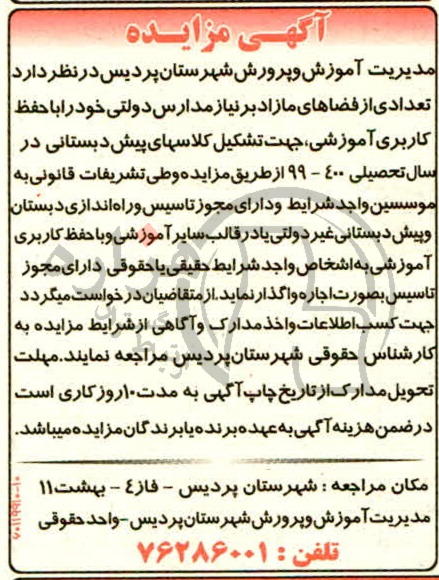 آگهی مزایده
مدیریت آموزش وپرورش شهرستان پردیس درنظر دارد
تعدادی از فضاهای مازاد بر نیاز مدارس دولتی خود را با حفظ
کاربری آموزشی، جهت تشکیل کلاسهای پیش دبستانی در
سال تحصیلی ۴۰۰ - ۹۹ از طریق مزایده وطی تشریفات قانونی به
موسسین واجد شرایط ودارای مجوز تاسیس وراه اندازی دبستان
وپیش دبستانی غیر دولتی یا در قالب سایر آموزشی وبا حفظ کاربری
آموزشی به اشخاص واجد شرایط حقیقی یا حقوقی دارای مجوز
تاسیس بصورت اجاره واگذار نماید. از متقاضیان درخواست میگردد
جهت کسب اطلاعات واخذ مدارک وآگاهی از شرایط مزایده به
کارشناس حقوقی شهرستان پردیس مراجعه نمایند. مهلت
تحویل مدارک از تاریخ چاپ آگهی به مدت ۱۰ روز کاری است
در ضمن هزینه آگهی به عهده برنده یا برندگان مزایده میباشد.
مکان مراجعه : شهرستان پردیس - فاز ۴ - بهشت ۱۱
مدیریت آموزش وپرورش شهرستان پردیس - واحد حقوقی
تلفن : ۷۶۲۸۶۰۰۱